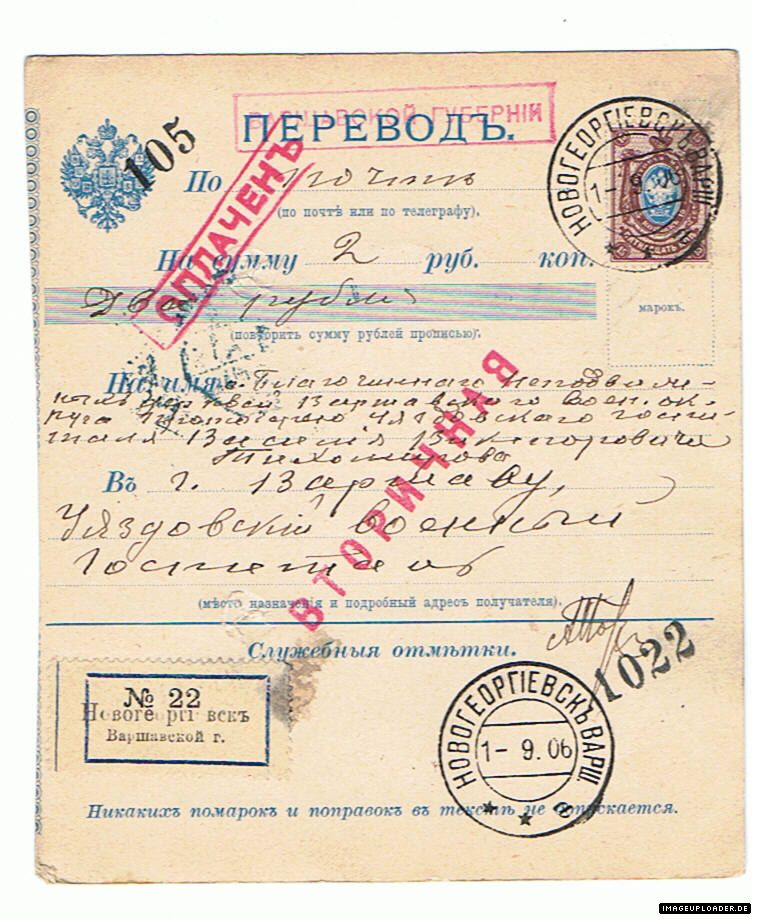 ВАРШАВСКОЙ ГУБЕРНІИ
ПЕРЕВОДЪ.
105
НОВОГЕОРГІЕВСКЪ ВАРШ.
1- 9.06
По почтѣ
(по почтѣ или по телеграфу).
ОПЛАЧЕНЪ
На сумму 2 руб. коп.
Два рубли
марокъ.
(повторить сумму рублей прописью).
На имя о. Благочиннаго неподвиж-
ныхъ церквей Варшавскаго воен. ок-
руга Уяздовскаго госпи-
таля Василія Викторовича
Тихомирова
ВТОРИЧНАЯ
Въ г. Варшаву,
Уяздовскій военный
Госпиталь
(мѣсто назначенія и подробный адресъ получателя).
Служебныя отмѣтки.
1022
№ 22
Новогеоргіевскъ
Варшавской г.
НОВОГЕОРГІЕВСКЪ ВАРШ.
1- 9.06
Никакихъ помарокъ и поправокъ въ текстѣ не допускается.
IMAGEUPLOADER.DE